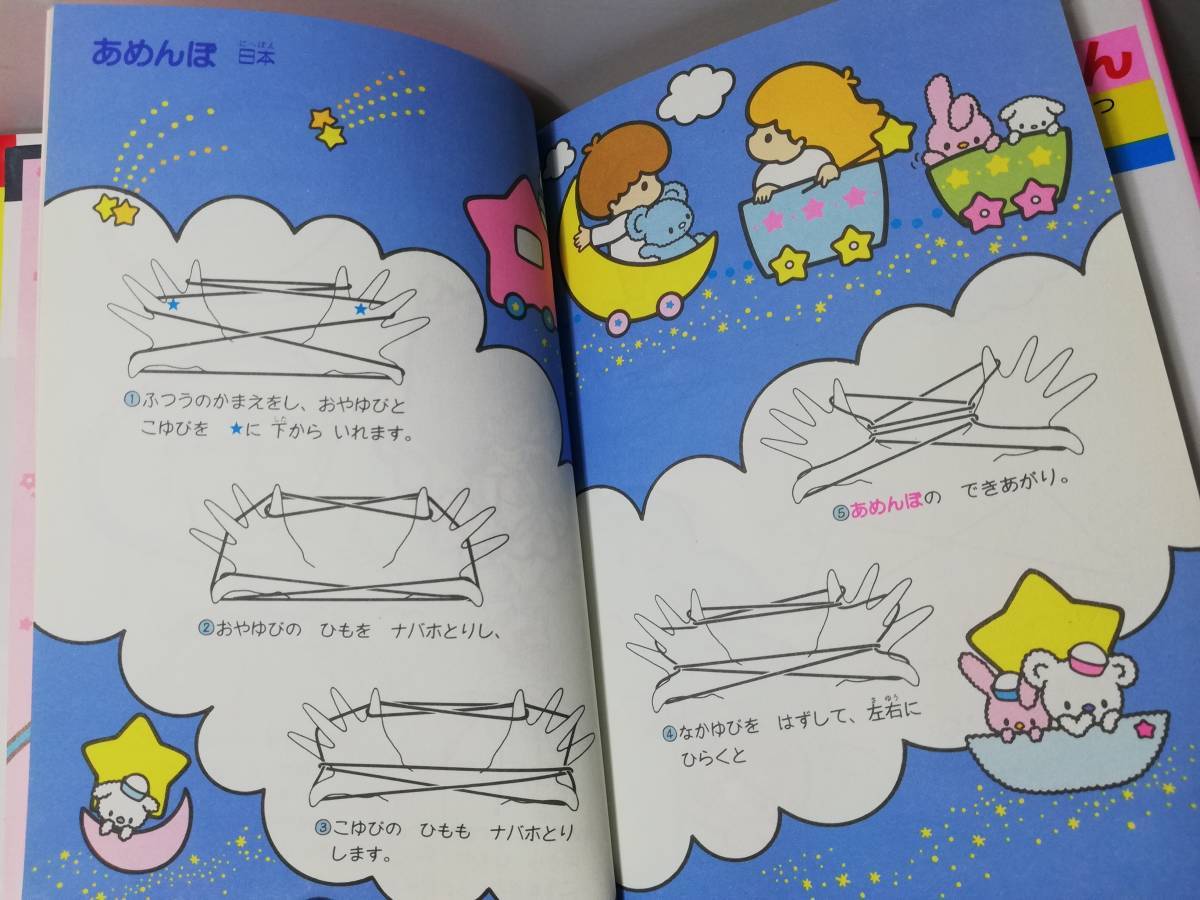 あめんぼ 日本
にっぽん
①ふつうのかまえをし、おやゆびと
こゆびを ★に 下から いれます。
した
②おやゆびの ひもを ナバホとりし、
③こゆびの ひもも ナバホとり
します。
④なかゆびを はずして、左右に
さゆう
ひらくと
⑤あめんぼの できあがり。
ん
つ